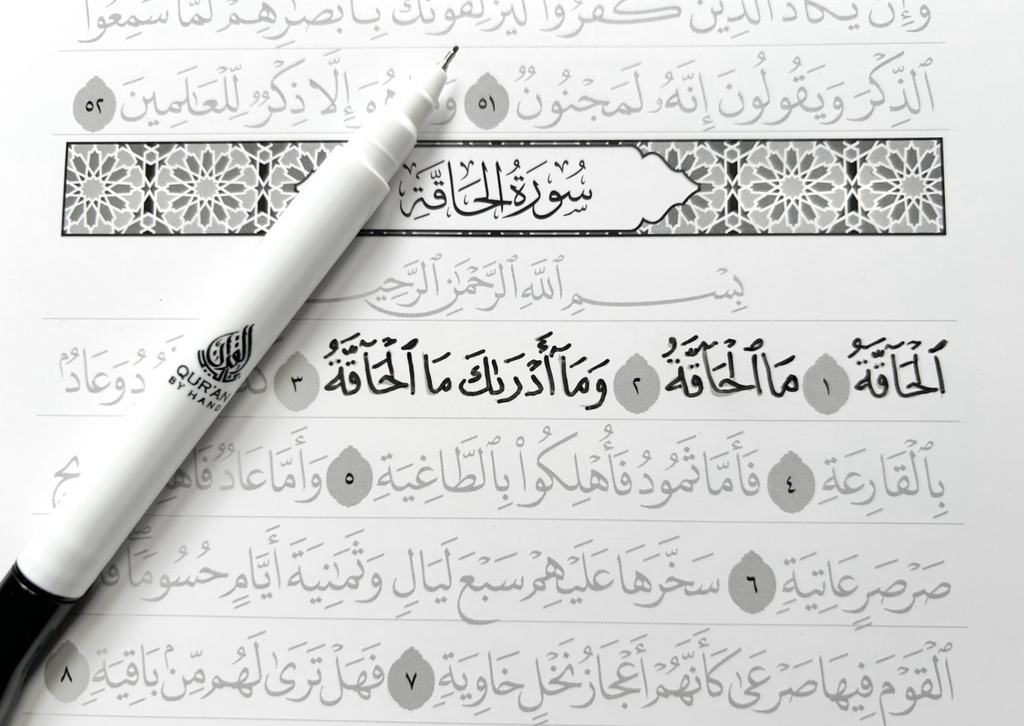 وَإِن يَكَادُ ٱلَّذِينَ كَفَرُوا۟ لَيُزْلِقُونَكَ بِأَبْصَٰرِهِمْ لَمَّا سَمِعُوا۟
ٱلذِّكْرَ وَيَقُولُونَ إِنَّهُۥ لَمَجْنُونٌ ٥١ إِلَّا ذِكْرٌ لِّلْعَٰلَمِينَ ٥٢
سُورَةُ الحَاقَّةِ
بِسْمِ ٱللَّهِ ٱلرَّحْمَٰنِ ٱلرَّحِيمِ
ٱلْحَآقَّةُ ١ مَا ٱلْحَآقَّةُ ٢ وَمَآ أَدْرَىٰكَ مَا ٱلْحَآقَّةُ ٣ ثَمُودُ وَعَادُۢ
بِٱلْقَارِعَةِ ٤ فَأَمَّا ثَمُودُ فَأُهْلِكُوا۟ بِٱلطَّاغِيَةِ ٥ وَأَمَّا عَادٌ
صَرْصَرٍ عَاتِيَةٍ ٦ سَخَّرَهَا عَلَيْهِمْ سَبْعَ لَيَالٍ وَثَمَٰنِيَةَ أَيَّامٍ حُسُومًا
ٱلْقَوْمَ فِيهَا صَرْعَىٰ كَأَنَّهُمْ أَعْجَازُ نَخْلٍ خَاوِيَةٍ ٧ فَهَلْ تَرَىٰ لَهُم مِّنۢ بَاقِيَةٍ ٨
القرآن
QUR'AN
BY HAND